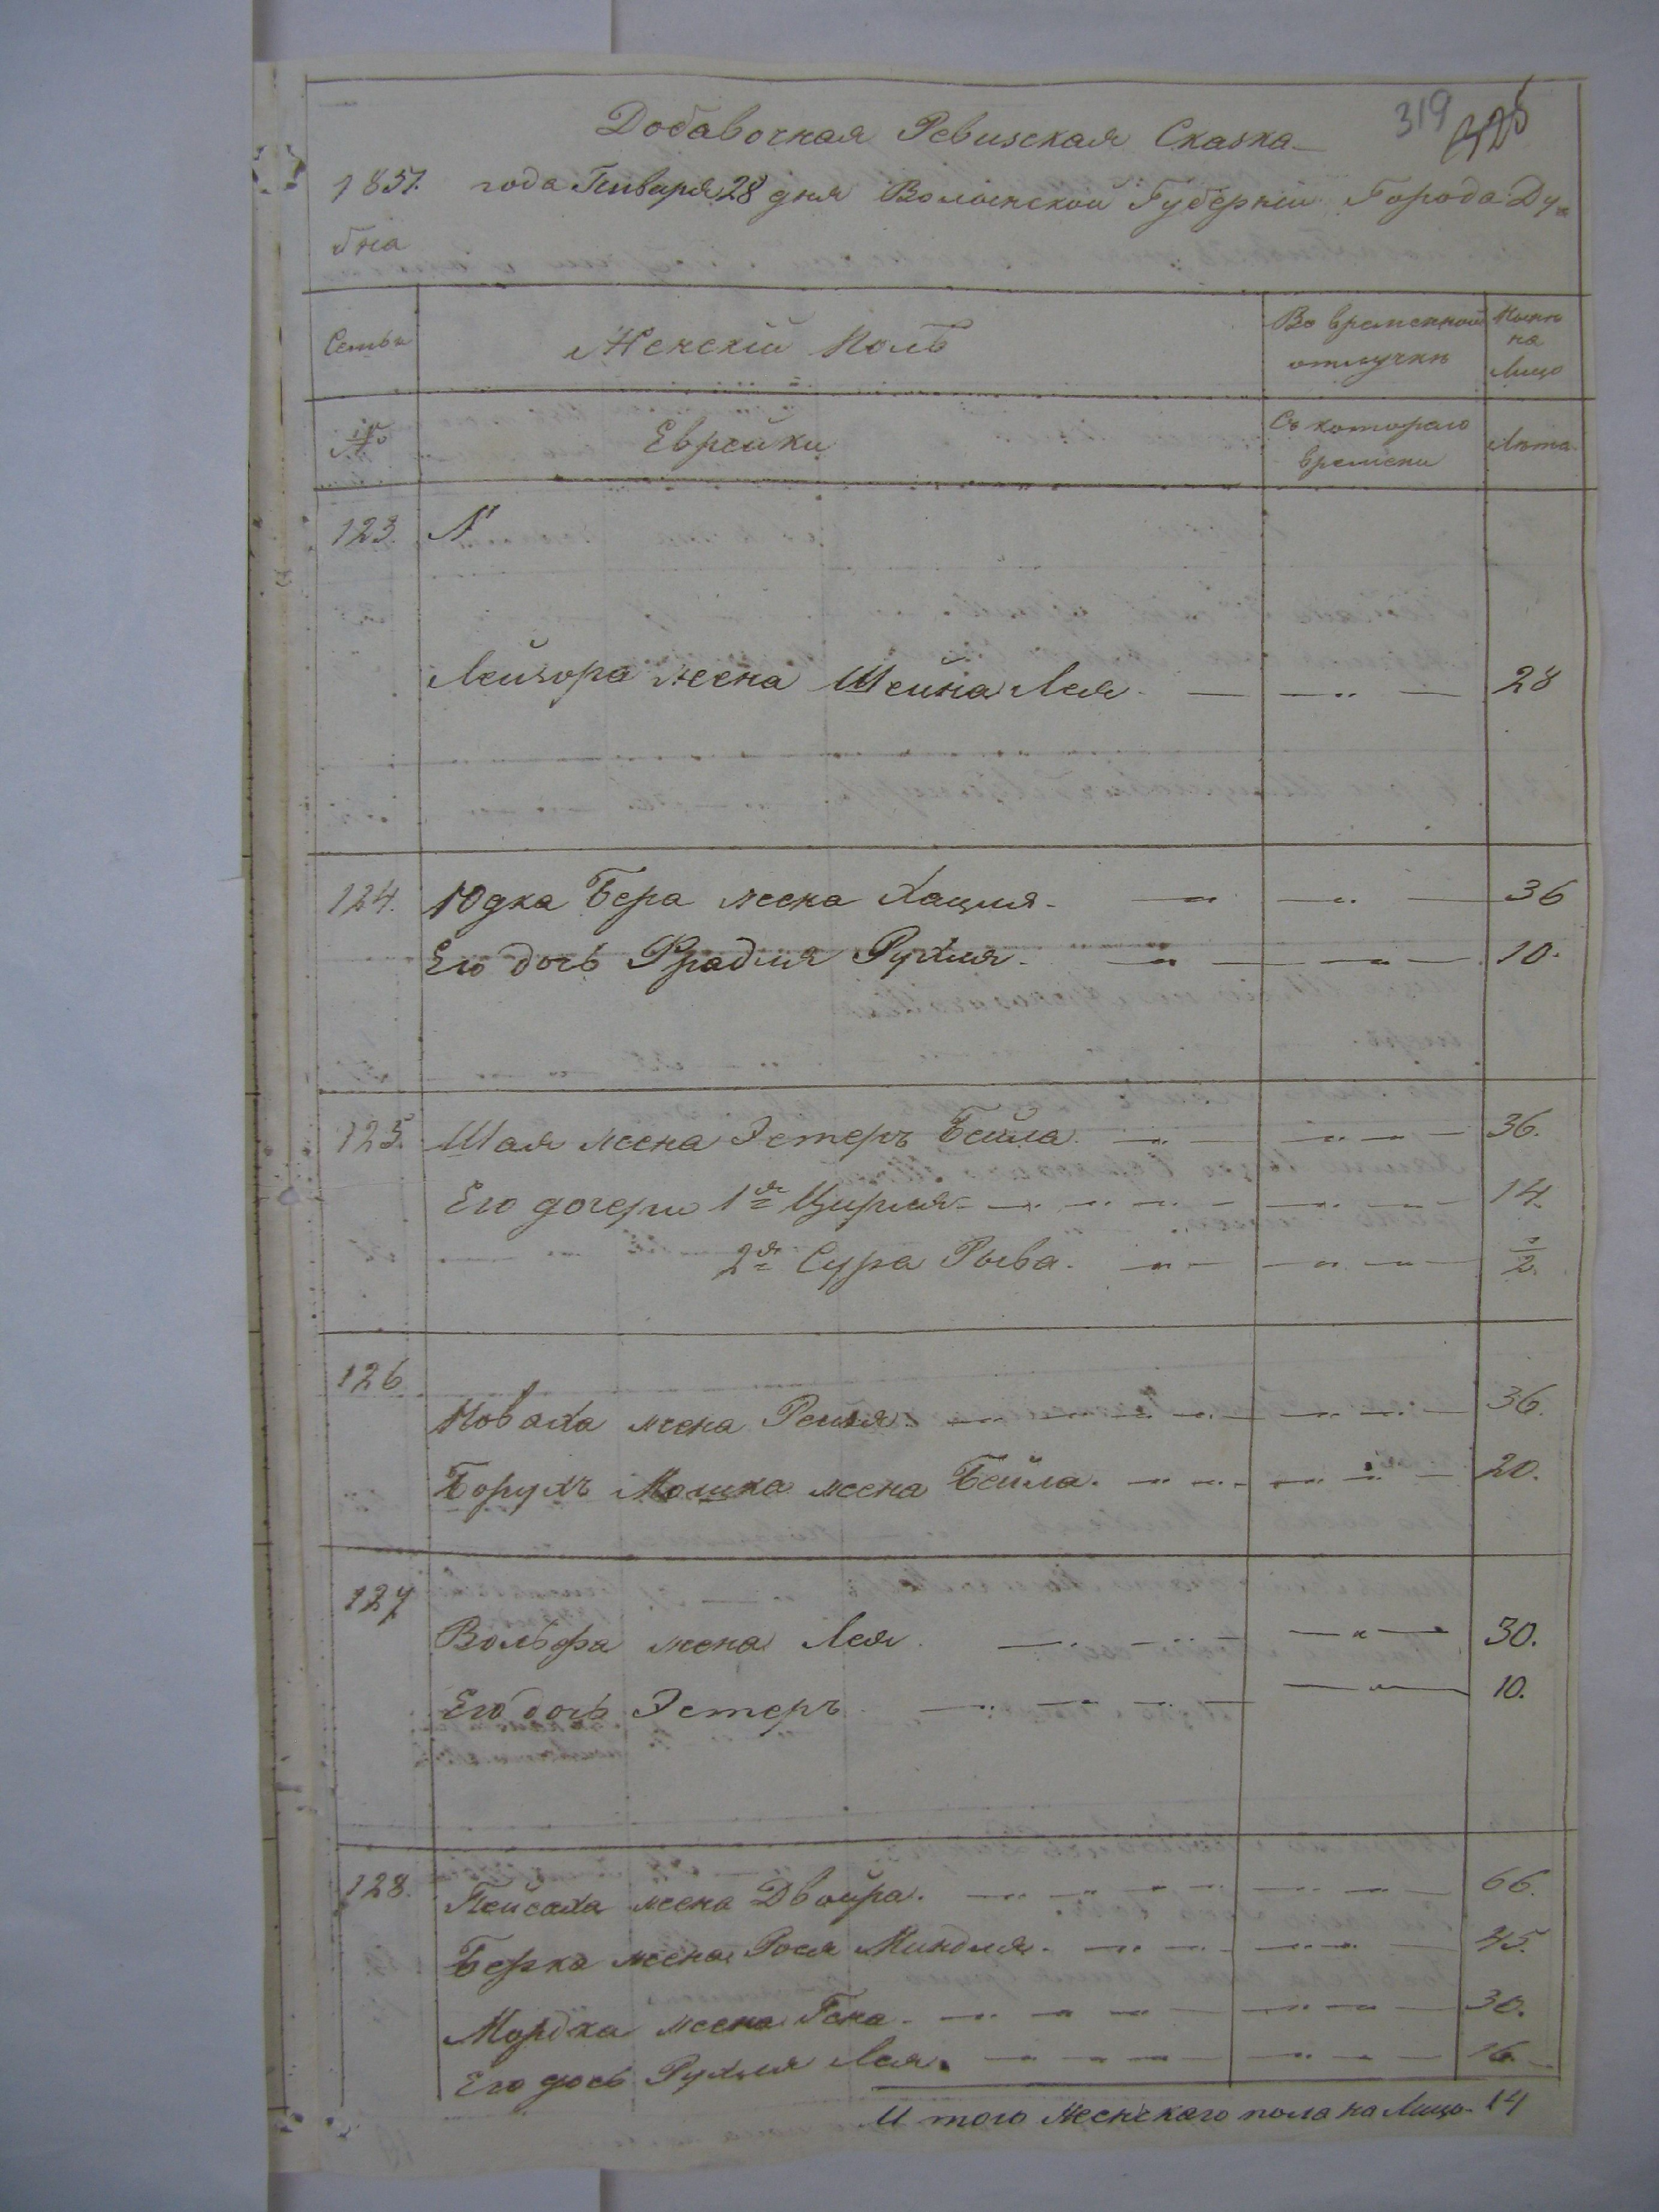 319
Добавочная Ревизская Сказка
1851. года Генваря 28 дня Волынской Губерніи Города Ду-
бна
Семьи Женскій Полъ Во временной отлучкѣ Нынѣ на Лицо
№ Еврейки Съ котораго времени Лѣта
123. №
Лейзора жена Шейна Лея. 28
124. Юдка Бера жена Хацля. 36
Его дочь Фрадля Рухля. 10.
125. Шая жена Эстеръ Бейла. 36.
Его дочери 1я Цирля 14.
2я Сура Рыва. 1/2.
126
Новаха жена Рейзя. 36.
Борухъ Мошка жена Бейла. 20.
127
Вольфа жена Лея. 30.
Его дочь Эстеръ 10.
128. Пейсаха жена Двойра. 66.
Берка жена Рося Миндля. 45.
Мордка жена Гена. 30.
Его дочь Рухля Лея. 16.
И того Женскаго пола на Лицо 14